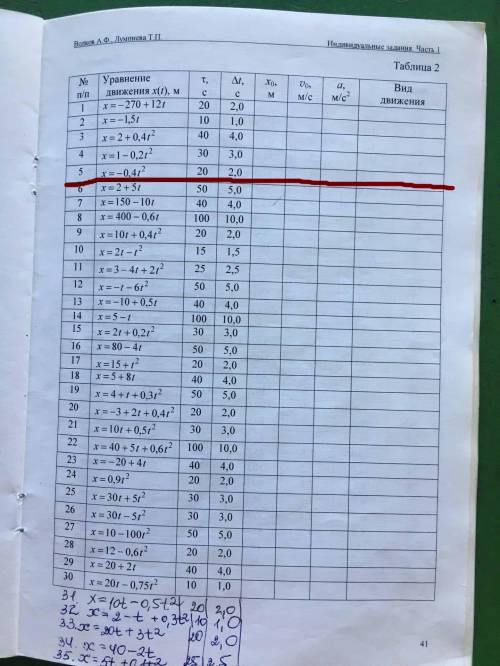 Волков А.Ф., Лумпиева Т.П. Индивидуальные задания. Часть 1
Таблица 2
№ п/п Уравнение движения x(t), м τ, с Δt, с x₀, м v₀, м/с a, м/с² Вид движения
1 x=−270+12t 20 2,0
2 x=−1,5t 10 1,0
3 x=2+0,4t² 40 4,0
4 x=1−0,2t² 30 3,0
5 x=−0,4t² 20 2,0
6 x=2+5t 50 5,0
7 x=150−10t 40 4,0
8 x=400−0,6t 100 10,0
9 x=10t+0,4t² 20 2,0
10 x=2t−t² 15 1,5
11 x=3−4t+2t² 25 2,5
12 x=−t−6t² 50 5,0
13 x=−10+0,5t 40 4,0
14 x=5−t 100 10,0
15 x=2t+0,2t² 30 3,0
16 x=80−4t 50 5,0
17 x=15+t² 20 2,0
18 x=5+8t 40 4,0
19 x=4+t+0,3t² 50 5,0
20 x=−3+2t+0,4t² 20 2,0
21 x=10t+0,5t² 30 3,0
22 x=40+5t+0,6t² 100 10,0
23 x=−20+4t 40 4,0
24 x=0,9t² 20 2,0
25 x=30t+5t² 30 3,0
26 x=30t−5t² 30 3,0
27 x=10−100t² 50 5,0
28 x=12−0,6t² 20 2,0
29 x=20+2t 40 4,0
30 x=20t−0,75t² 10 1,0
31. x=10t−0,5t² 20 2,0
32. x=2−t+0,3t² 10 1,0
33. x=20t+3t² 20 2,0
34. x=40−2t
35. x=5t+0,1t² 25 2,5
41